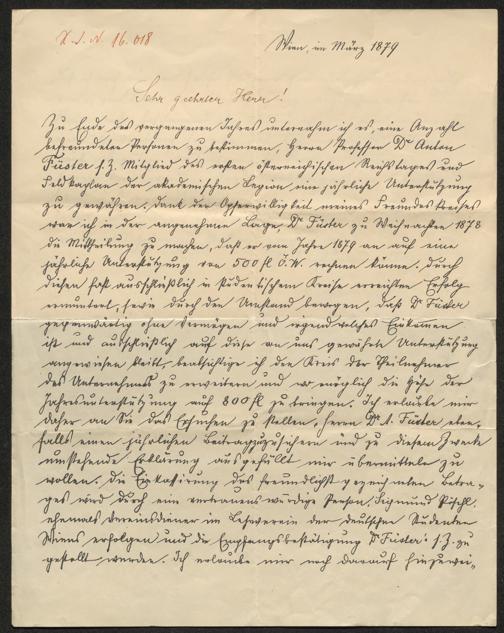 I. N. 16.018
Wien, im März 1879
Sehr geehrter Herr!
Zu Ende des vergangenen Jahres unternahm ich es, eine Anzahl
befreundeter Personen zu bestimmen, Herrn Professor Dr Anton
Füster s. Z. Mitglied des ersten österreichischen Reichstages und
Feldkaplan der akademischen Legion eine jährliche Unterstützung
zu gewähren. Dank der Opferwilligkeit meines Freundeskreises
war ich in der angenehmen Lage, Dr Füster zu Weihnachten 1878
die Mittheilung zu machen, daß er vom Jahre 1879 an auf eine
jährliche Unterstützung von 500 fl Ö. W. rechnen könne. Durch
diesen fast ausschließlich in studentischem Kreise erreichten Erfolg
ermuntert, sowie durch den Umstand bewogen, daß Dr Füster
gegenwärtig ohne Vermögen und irgend welches Einkommen
ist und ausschließlich auf diese von uns gewährte Unterstützung
angewiesen bleibt, beabsichtige ich den Kreis der Theilnehmer
des Unternehmens zu erweitern und wo möglich die Höhe der
Jahresunterstützung auf 800 fl zu bringen. Ich erlaube mir
daher an Sie das Ersuchen zu stellen, Herrn Dr A. Füster eben-
falls einen jährlichen Beitrag zuzusichern und zu diesem Zwecke
umstehende Erklärung ausgefüllt mir übermitteln zu
wollen. Die Einkassirung des freundlichst gezeichneten Betra-
ges wird durch eine vertrauenswürdige Person, Sigmund Pöschl,
ehemals Vereinsdiener im Leseverein der deutschen Studenten
Wiens erfolgen und die Empfangsbestätigung Dr Füster's s. Z. zu
gestellt werden. Ich erlaube mir noch darauf hinzuwei-